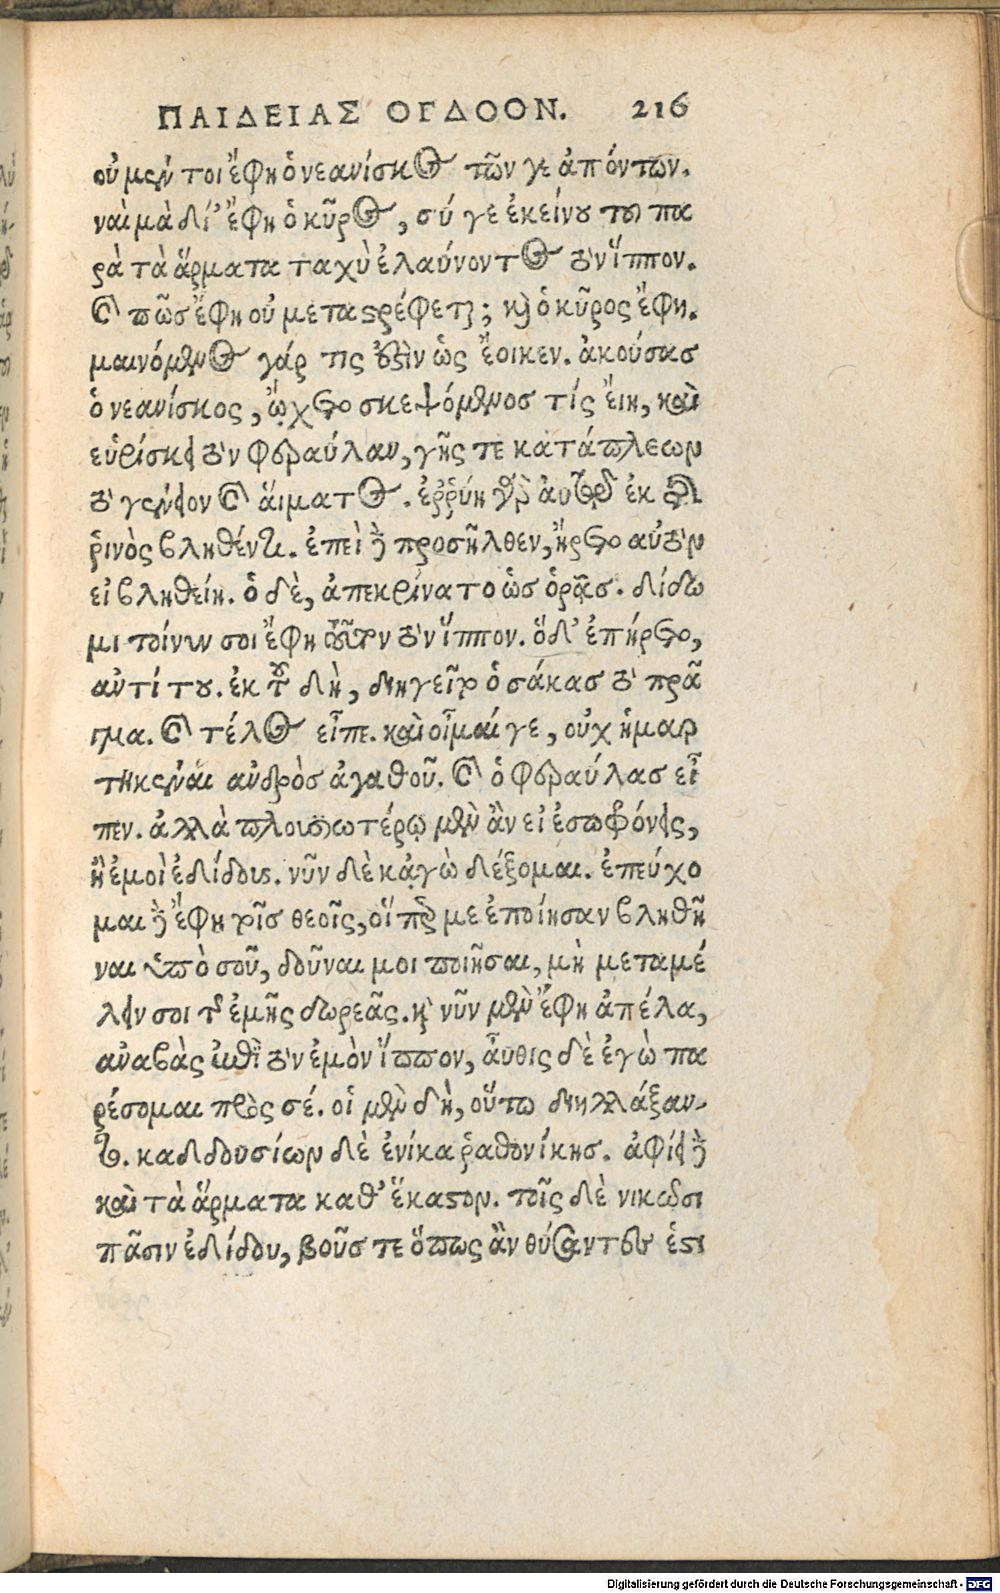 ΠΑΙΔΕΙΑΣ ΟΓΔΟΟΝ. 216
οὐ μέν τοι ἔφη ὁ νεανίσκος τῶν γε ἀπόντων.
ναὶ μὰ δί' ἔφη ὁ κῦρος, σύ γε ἐκείνου του πα
ρὰ τὰ ἅρματα ταχὺ ἐλαύνοντος τὸν ἵππον.
καὶ πῶς ἔφη οὐ μεταστρέφεται; καὶ ὁ κῦρος ἔφη.
μαινόμενος γάρ τις ἐστὶν ὡς ἔοικεν. ἀκούσας
ὁ νεανίσκος, ᾤχετο σκεψόμενος τίς εἴη, καὶ
εὑρίσκει τὸν φεραύλαν, γῆς τε κατάπλεων
τὸ γένειον καὶ αἵματος. ἐῤῥύη γὰρ αὐτῷ ἐκ τῆς
ῥινὸς βληθέντι. ἐπεὶ δὲ προσῆλθεν, ἤρετο αὐτὸν
εἰ βληθείη. ὁ δὲ, ἀπεκρίνατο ὡς ὁρᾷς. δίδω
μι τοίνυν σοι ἔφη τοῦτον τὸν ἵππον. ὅδ' ἐπήρετο,
ἀντί του. ἐκ τούτου δὴ, διηγεῖτο ὁ σάκας τὸ πρᾶ
γμα. καὶ τέλος εἶπε. καὶ οἶμαί γε, οὐχ ἡμαρ
τηκέναι ἀνδρὸς ἀγαθοῦ. καὶ ὁ φεραύλας εἶ
πεν. ἀλλὰ πλουσιωτέρῳ μὲν ἂν εἰ ἐσωφρόνεις,
ἢ ἐμοὶ ἐδίδους. νῦν δὲ κᾀγὼ δέξομαι. ἐπεύχο
μαι δὲ ἔφη τοῖς θεοῖς, οἵπερ με ἐποίησαν βληθῆ
ναι ὑπὸ σοῦ, δοῦναι μοι ποιῆσαι, μὴ μεταμέ
λειν σοι τῆς ἐμῆς δωρεᾶς. καὶ νῦν μὲν ἔφη ἀπέλα,
ἀναβὰς ἐπὶ τὸν ἐμὸν ἵππον, αὖθις δὲ ἐγὼ πα
ρέσομαι πρὸς σέ. οἱ μὲν δὴ, οὕτω διηλλάξαν-
το. καδδουσίων δὲ ἐνίκα ῥαθονίκης. ἀφίει δὲ
καὶ τὰ ἅρματα καθ' ἕκαστον. τοῖς δὲ νικῶσι
πᾶσιν ἐδίδου, βοῦς τε ὅπως ἂν θύσαντες ἑστι
Digitalisierung gefördert durch die Deutsche Forschungsgemeinschaft - DFG